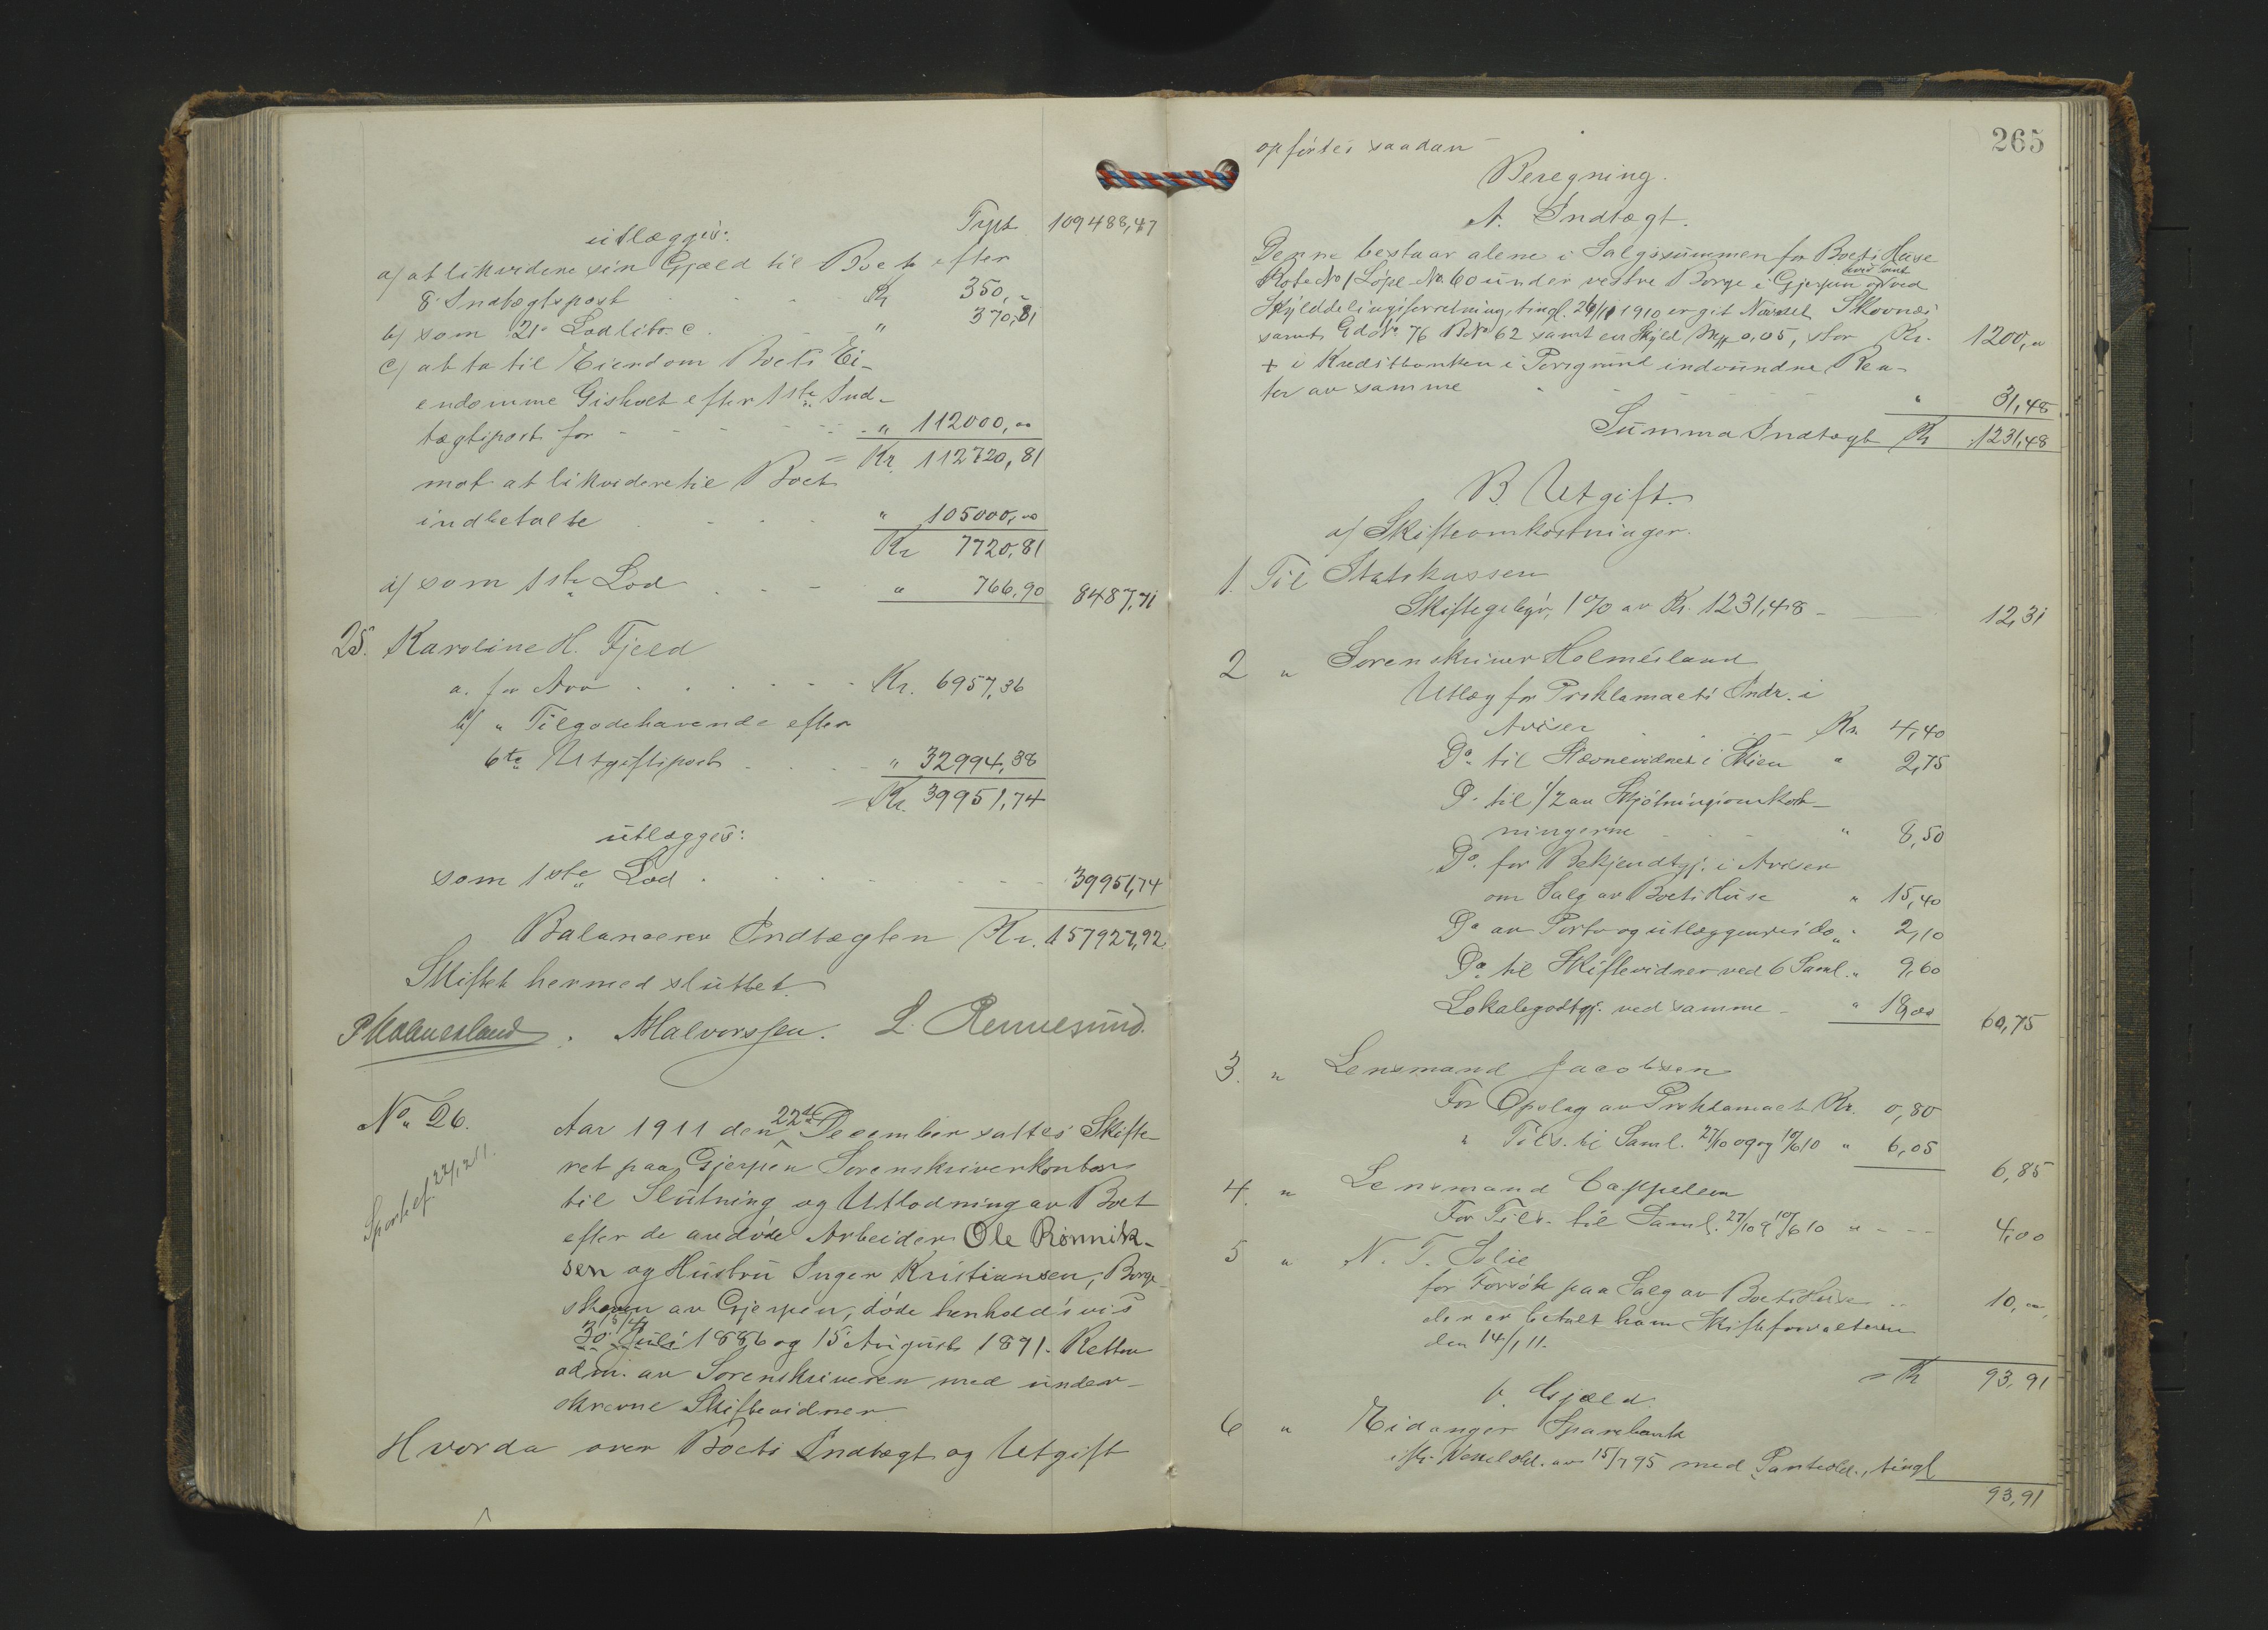 Trpt. 109488,47
utlægges:
a/ at likvidere sin Gjæld til Boet efter
8. Indtægtspost Kr 350,"
b/ som 21. Lod litr. c. " 370,81
c/ at ta til Eiendom Boets Ei-
endomme Gisholt efter 1ste Ind-
tægtspost for " 112000,00
Kr. 112720,81
mot at likvidere til Boet
indbetalte " 105000,00
Kr 7720,81
d/ som 1ste Lod " 766,90 8487,71
25. Karoline H. Fjeld
a. for Arv Kr. 6957,36
b/ " Tilgodehavende efter
6te Utgiftspost " 32994,38
Kr. 39951,74
utlægges:
som 1ste Lod 39951,74
Balancerer Indtægten Kr. 157927,92
Skiftet hermed sluttet.
P Holmesland. Halvorssen. L. Rennesund.
No. 26.
Sportel. 22/12 11.
Aar 1911 den 22de December sattes Skifte-
ret paa Gjerpen Sorenskriverkontor
til Slutning og Utlodning av Boet
efter de avdøde Arbeider Ole Rønnik-
sen og Hustru Inger Kristiansen, Borge-
skogen av Gjerpen, døde henholdsvis
30. Juli 1886 og 15. August 1891. Retten
adm. av Sorenskriveren med under-
skrevne Skiftevidner
Hvorda over Boets Indtægt og Utgift
265
opførtes saadan
Beregning.
A. Indtægt.
Denne bestaar alene i Salgssummen for Boets Huse
Rote No 1 Løpe No. 60 under vestre Borge i Gjerpen og ved
Skylddelingsforretning, tingl. 26/11 1910 er git Navnet Skovnæs
samt Gdo No. 76 B No 62 samt en Skyld Mrk 0,05, stor Kr. 1200,"
+ i Kreditbanken i Porsgrund indvundne Ren-
ter av samme " 31,48
Summa Indtægt Kr 1231,48
B. Utgift.
a/ Skifteomkostninger.
1. Til Statskassen
Skiftegebyr, 1% av Kr. 1231,48 12,31
2 " Sorenskriver Holmesland
Utlæg for Proklamaets Indr. i
Aviser Kr. 4,40
Do. til Stævnevidner i Skien " 2,75
Do. til 1/2 av Skjøtningsomkost-
ningerne " 8,50
Do. for Bekjendtgj. i Aviser
om Salg av Boets Huse " 15,40
Do av Porto og utlæggenes do " 2,10
Do. til Skiftevidner ved 6 Saml. " 9,60
Lokalegodtgj. ved samme " 18,00 60,75
3. " Lensmand Jacobsen
For Opslag av Proklamaet Kr. 0,80
" Tils. til Saml. 27/10 09 og 10/6 10 " 6,05 6,85
4. " Lensmand Cappelen
For Tils. til Saml. 27/10 9 10/6 10 " 4,00
5 " N. T. Solie
for Forsøk paa Salg av Boets Huse 10,"
der er betalt ham Skifteforvalteren
den 14/1 11.
Kr 93,91
b. Gjæld
6 " Eidanger Sparebank
ifl. Vexelobl. av 15/7 95 med Panteobl., tingl
93,91